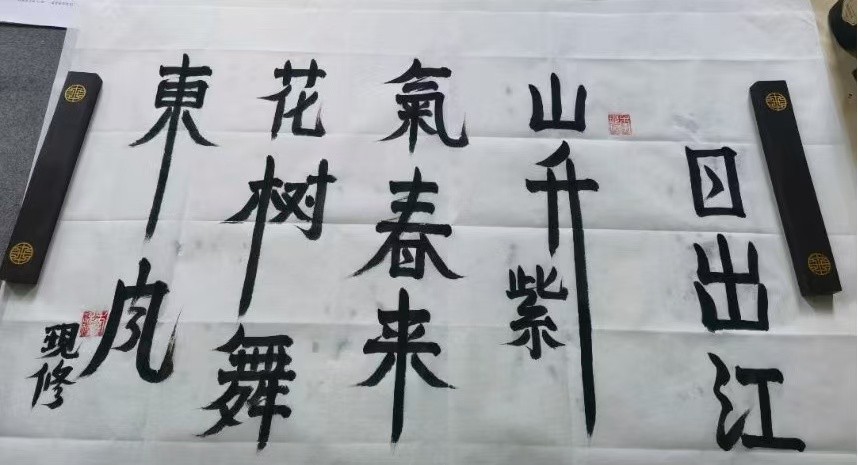 日出江
山升紫
氣春来
花树舞
東风
現修